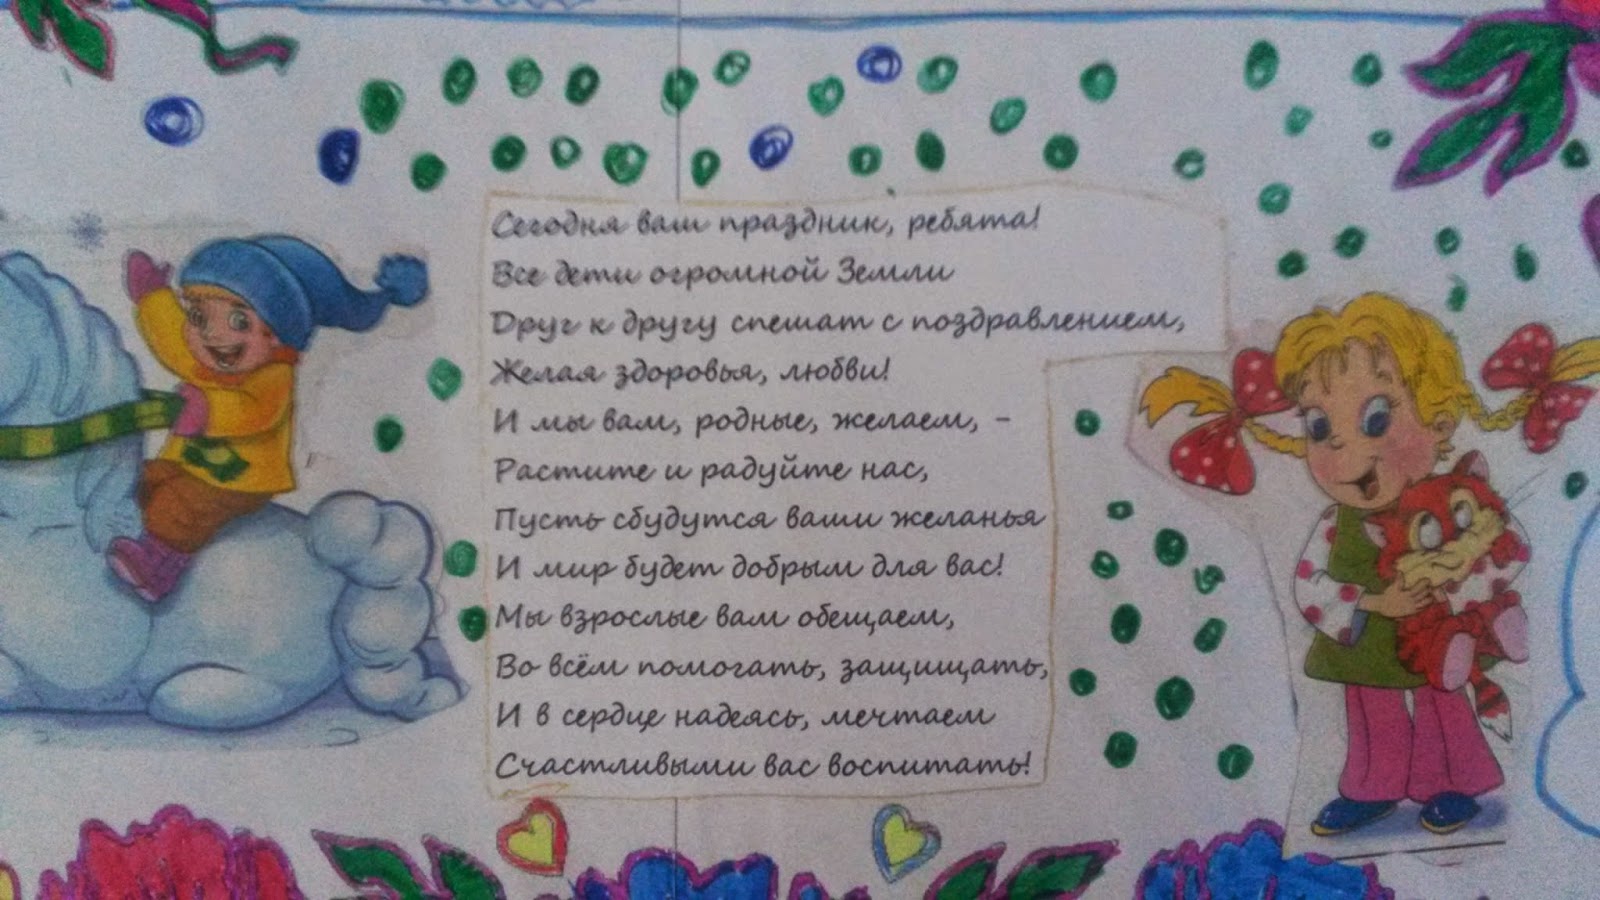 Сегодня ваш праздник, ребята!
Все дети огромной Земли
Друг к другу спешат с поздравлением,
Желая здоровья, любви!
И мы вам, родные, желаем, -
Растите и радуйте нас,
Пусть сбудутся ваши желанья
И мир будет добрым для вас!
Мы взрослые вам обещаем,
Во всём помогать, защищать,
И в сердце надеясь, мечтаем
Счастливыми вас воспитать!